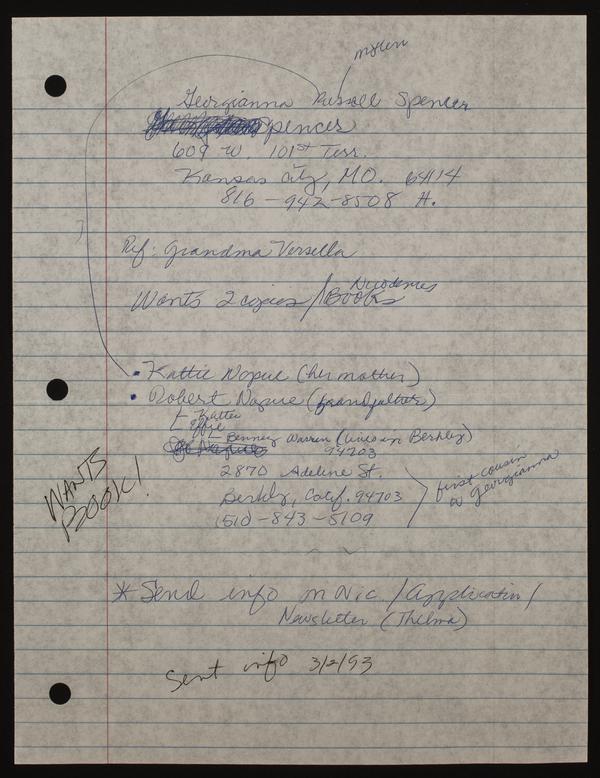 mother
Georgianna Russell Spencer
Spencer
609 W. 101st Terr.
Kansas City, MO. 64114
816-942-8508 H.
Ref: Grandma Versella
Wants 2 copies / Nicodemus Books
• Kattie Nogue (her mother)
• Robert Nogue (grandfather)
Kattie
Effie
Benney Warren (lives in Berkly)
94703
2870 Adeline St.
Berkly, Calif. 94703
(510)-843-5109
first cousin
Georgianna
WANTS
BOOK!
* Send info on Nic / Application /
Newsletter (Thelma)
Sent info 3/2/93